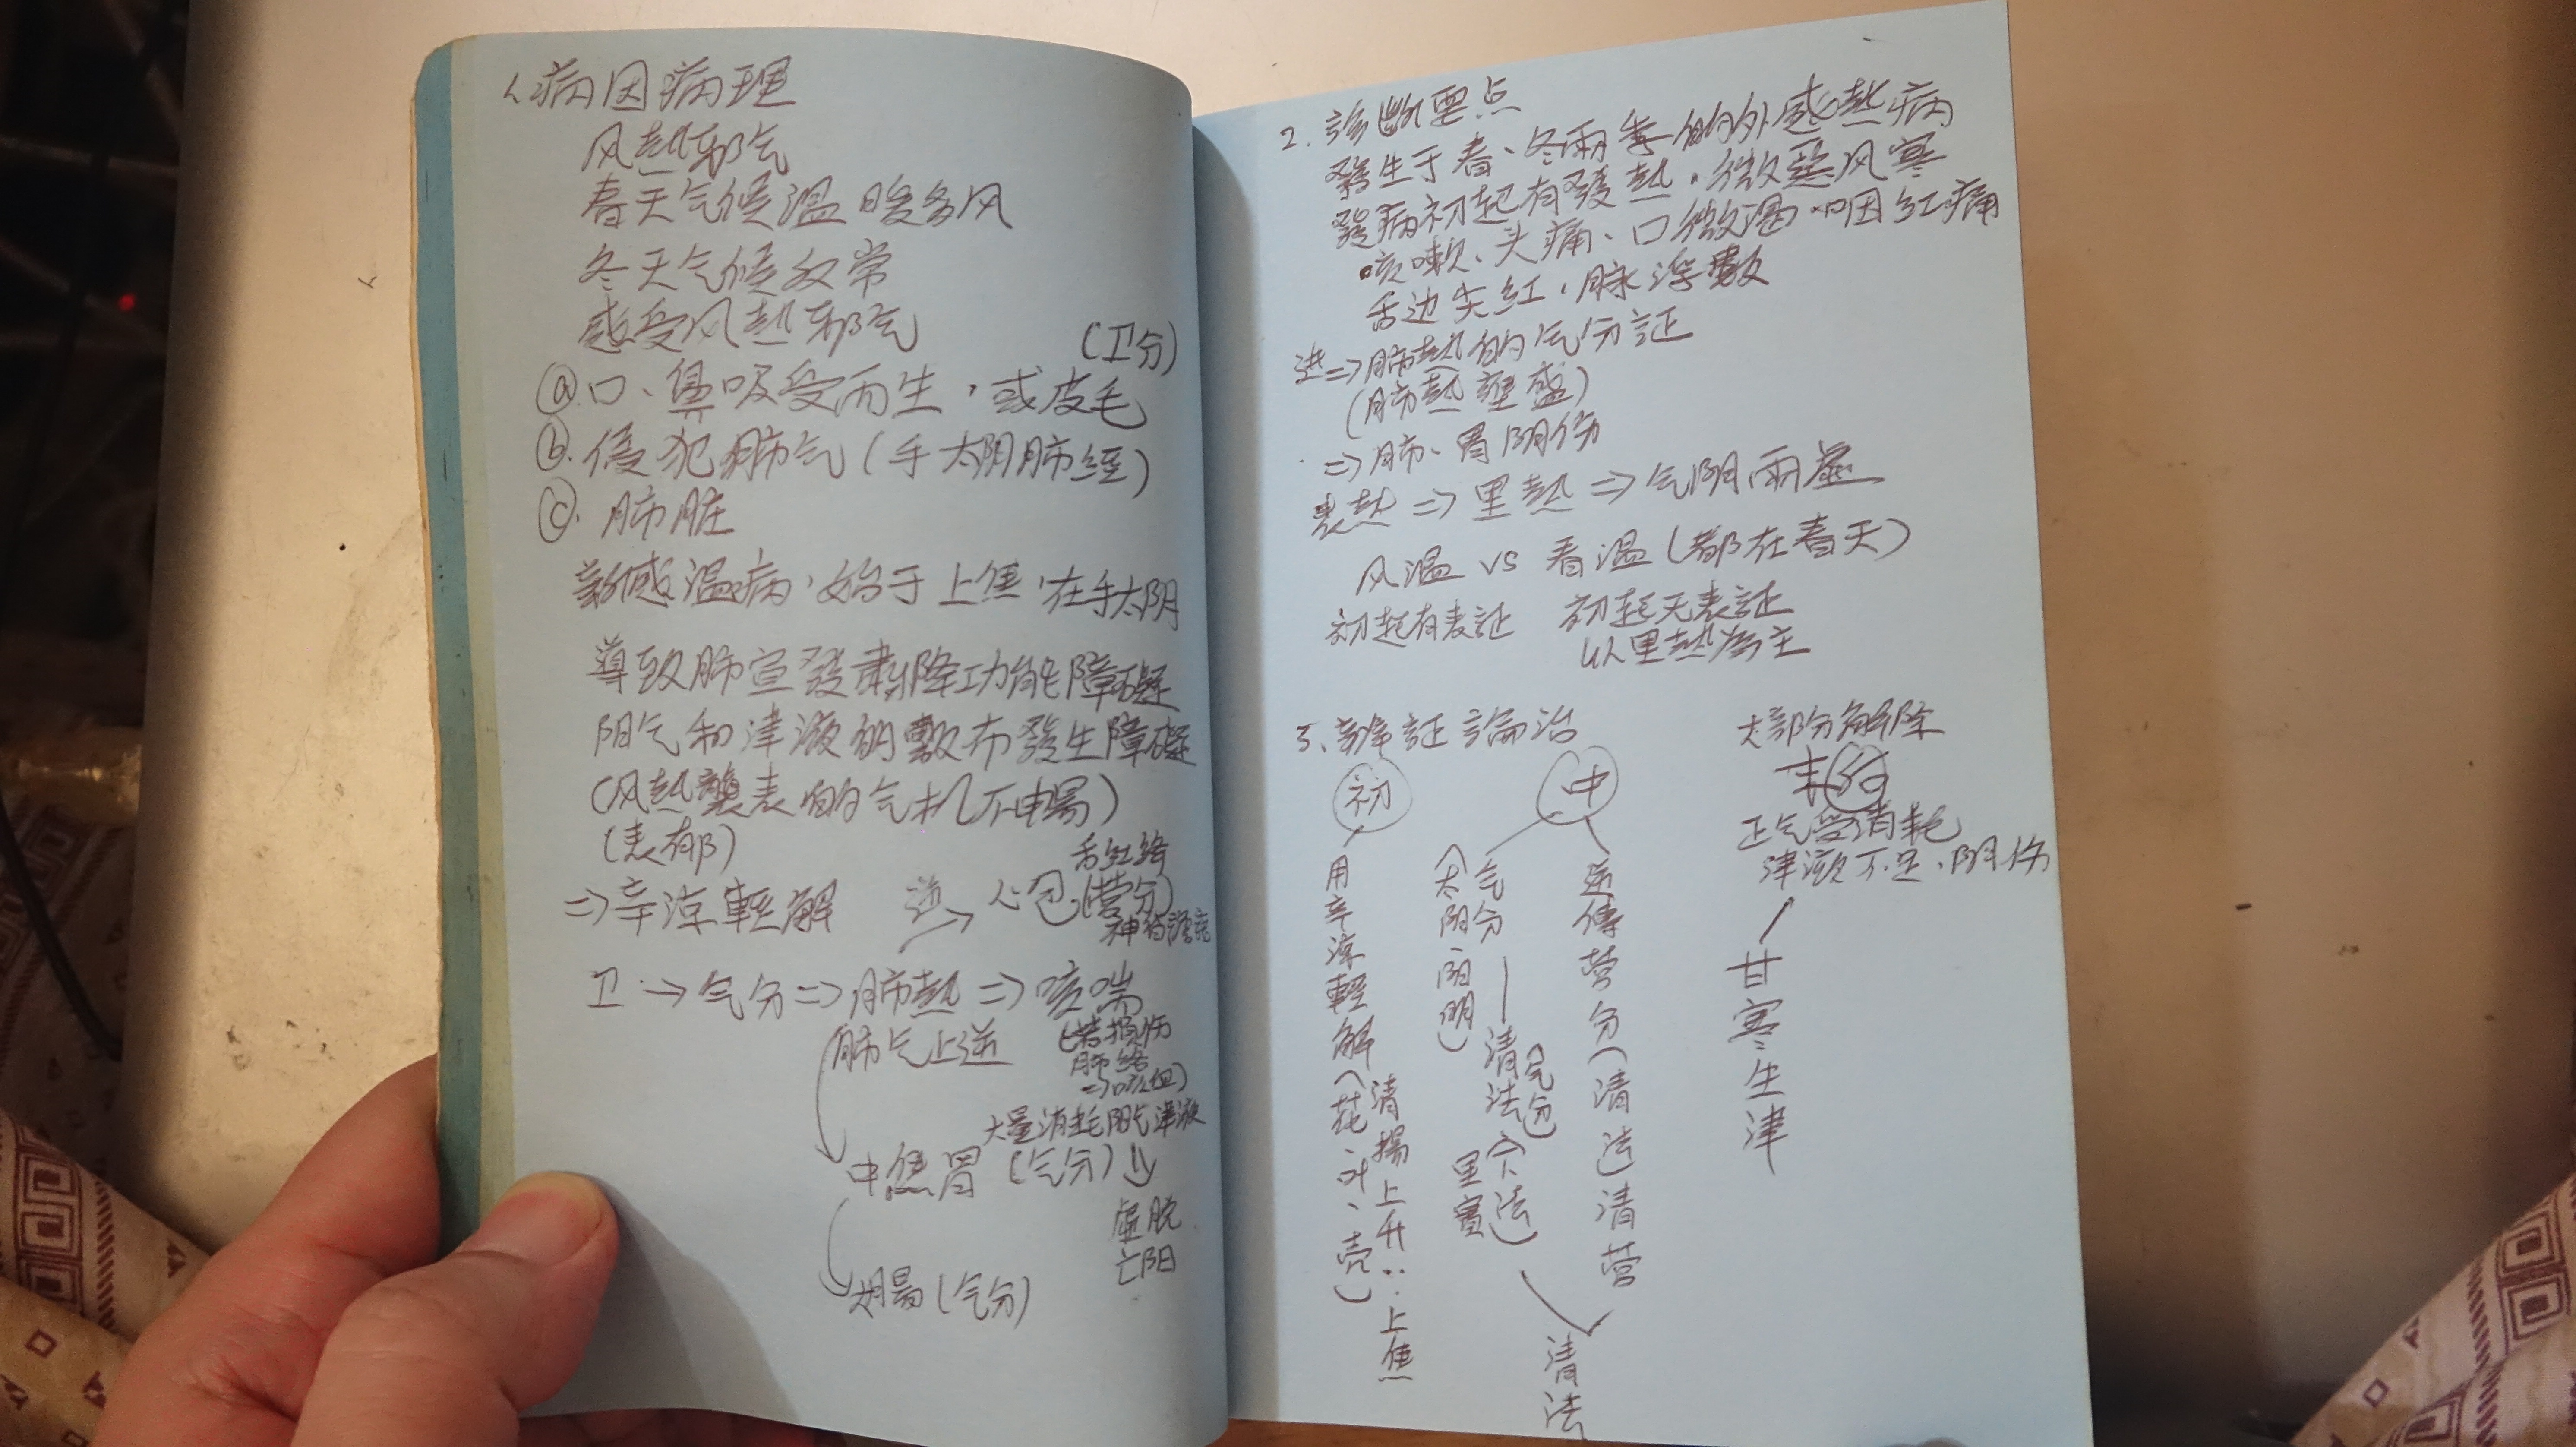 1.病因病理
风熱邪气
春天气候温暖多风
冬天气候反常
感受风熱邪气
(卫分)
ⓐ口、鼻吸受而生,或皮毛
ⓑ.侵犯肺气(手太阴肺経)
ⓒ.肺脏
新感温病,始于上焦,在手太阴
導致肺宣發肅降功能障礙
阳气和津液的敷布發生障礙
(风熱襲表的气机不暢)
(表有邪)
=>辛凉輕解
逆 → 心包(营分)
舌紅絳
神昏譫語
卫→气分=>肺熱=>咳喘
肺气上逆
(若損伤
肺絡
=>咳血)
大量消耗阳气津液
中焦胃(气分)⇓
虚脱
亡阳
腸(气分)
2.診断要点
發生于春、冬兩季的外感熱病
發病初起有發熱,微惡风寒
咳嗽、头痛、口微渴、咽红痛
舌边尖红,脉浮數
进=>肺熱的气分証
(肺熱壅盛)
=>肺、胃阴伤
表熱=>里熱=>气阴兩虚
风温 vs 春温(都在春天)
初起有表証 初起无表証
以里熱為主
3.辨証論治
初
用辛凉輕解(花、叶、壳)
清揚上升:上焦
中
气分
(太阴、阳明)
清法(气分)
(下法)
里實
逆傳营分(清法)清营
清法
大部分解除
末
正气受消耗
津液不足、阴伤
甘寒生津